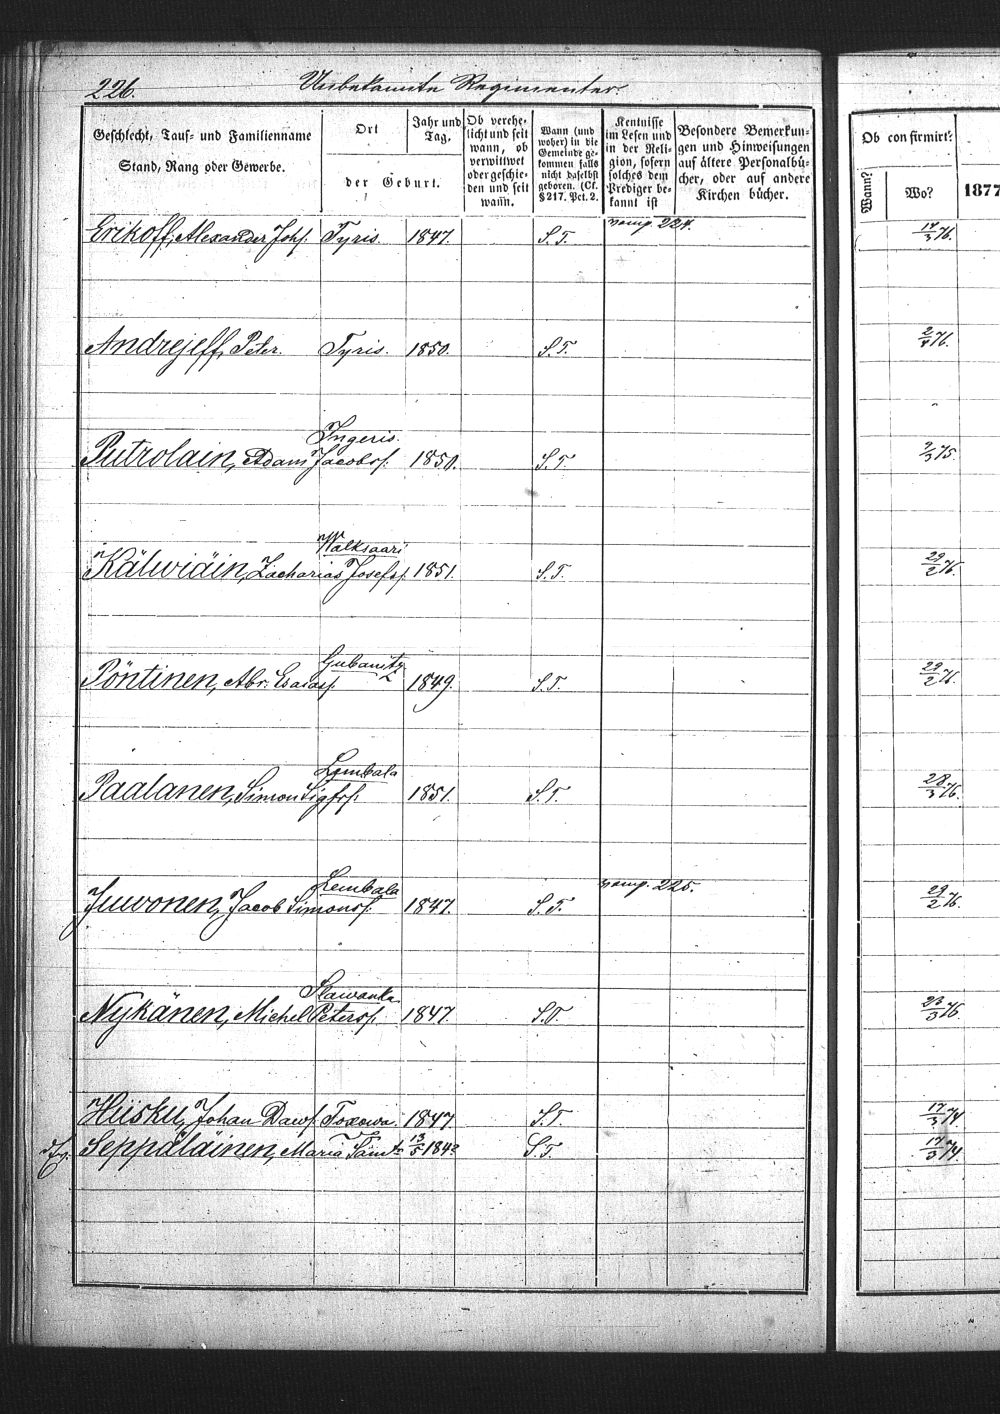 226. Unbekannte Regimenter.
Geschlecht, Tauf- und Familienname
Stand, Rang oder Gewerbe.
Ort
der Geburt.
Jahr und
Tag.
Ob verehe-
licht und seit
wann, ob
verwittwet
oder geschie-
den und seit
wann.
Wann (und
woher) in die
Gemeinde ge-
kommen falls
nicht daselbst
geboren. (Cf.
§ 217. Pct. 2.
Kentnisse
im Lesen und
in der Reli-
gion, sofern
solches dem
Prediger be-
kannt ist
Besondere Bemerkun-
gen und Hinweisungen
auf ältere Personalbü-
cher, oder auf andere
Kirchen bücher.
Ob confirmirt?
Wann?
Wo?
1877
Erikoff, Alexander Johs. Tyris. 1847. S. T. 224. 14/3 76.
Andrejeff, Peter. Tyris. 1850. S. T. 2/4 76.
Ingeris.
Putrolain, Adam Jacobs. 1850. S. T. 2/3 75.
Walksaari
Kälwiäin, Zacharias Josefs. 1851. S. T. 29/2 76.
Gubanitz
Pöntinen, Abr. Esaias. 1849. S. T. 29/2 76.
Lembala
Paalanen, Simon Sigfrs. 1851. S. T. 28/3 76.
Lembala
Juwonen, Jacob Simons. 1847. S. T. 225. 29/2 76.
Slawanka
Nykänen, Michel Peters. 1847. S. T. 23/3 76.
Hiisku, Johan Daws. Toxowa. 1847. S. T. 17/3 74.
Seppäläinen, Maria 13/5 184? S. T. 17/3 74.